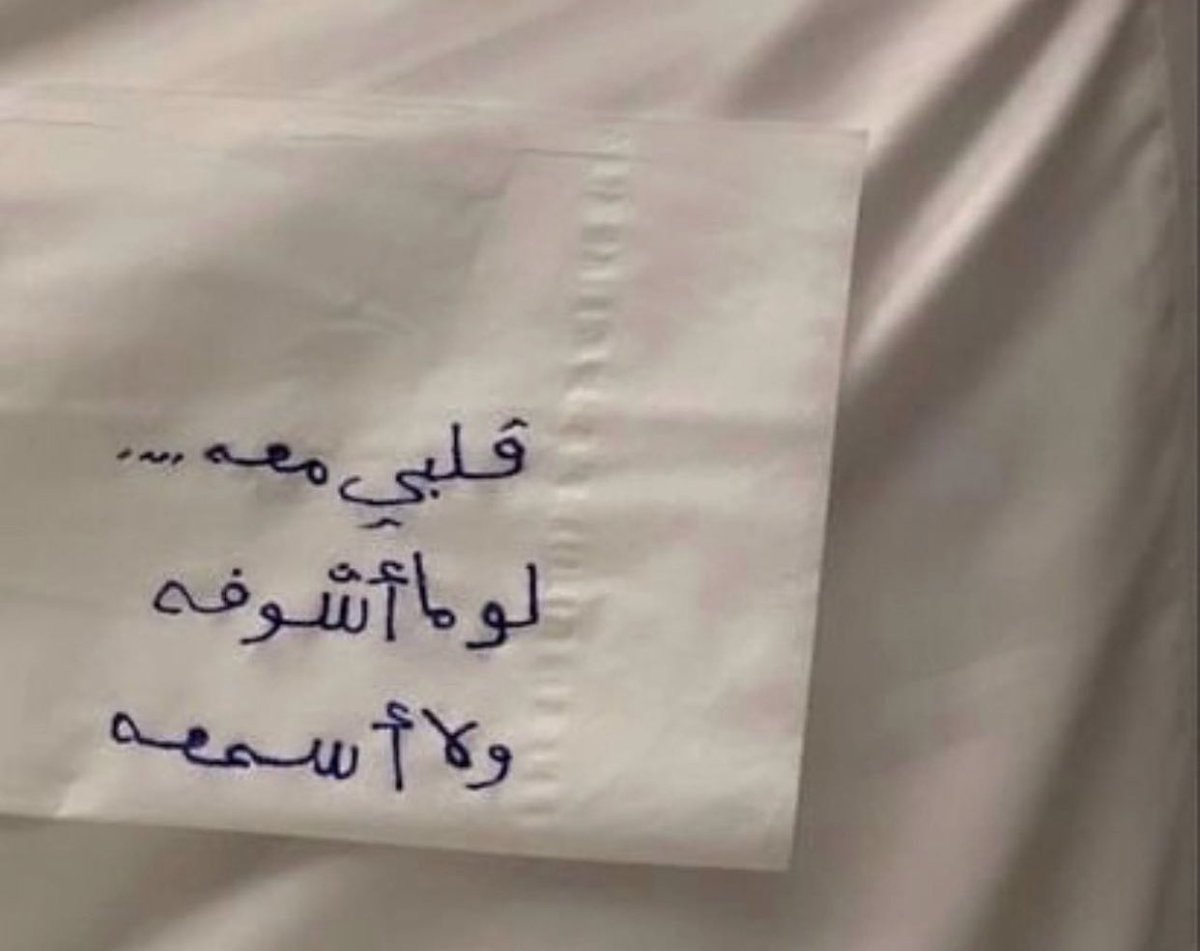 قلبي معه ....
لو ما أشوفه
ولا أسمعه